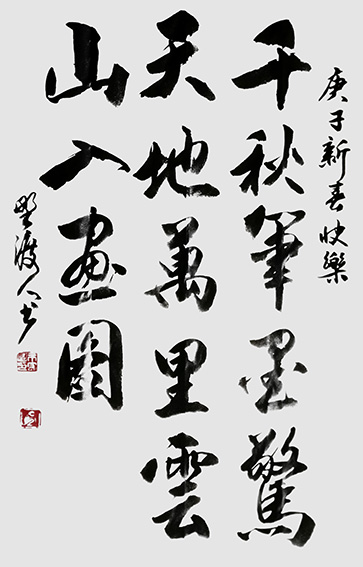 庚子新春快樂
千秋筆墨驚
天地萬里雲
山入畫圖
野渡人书